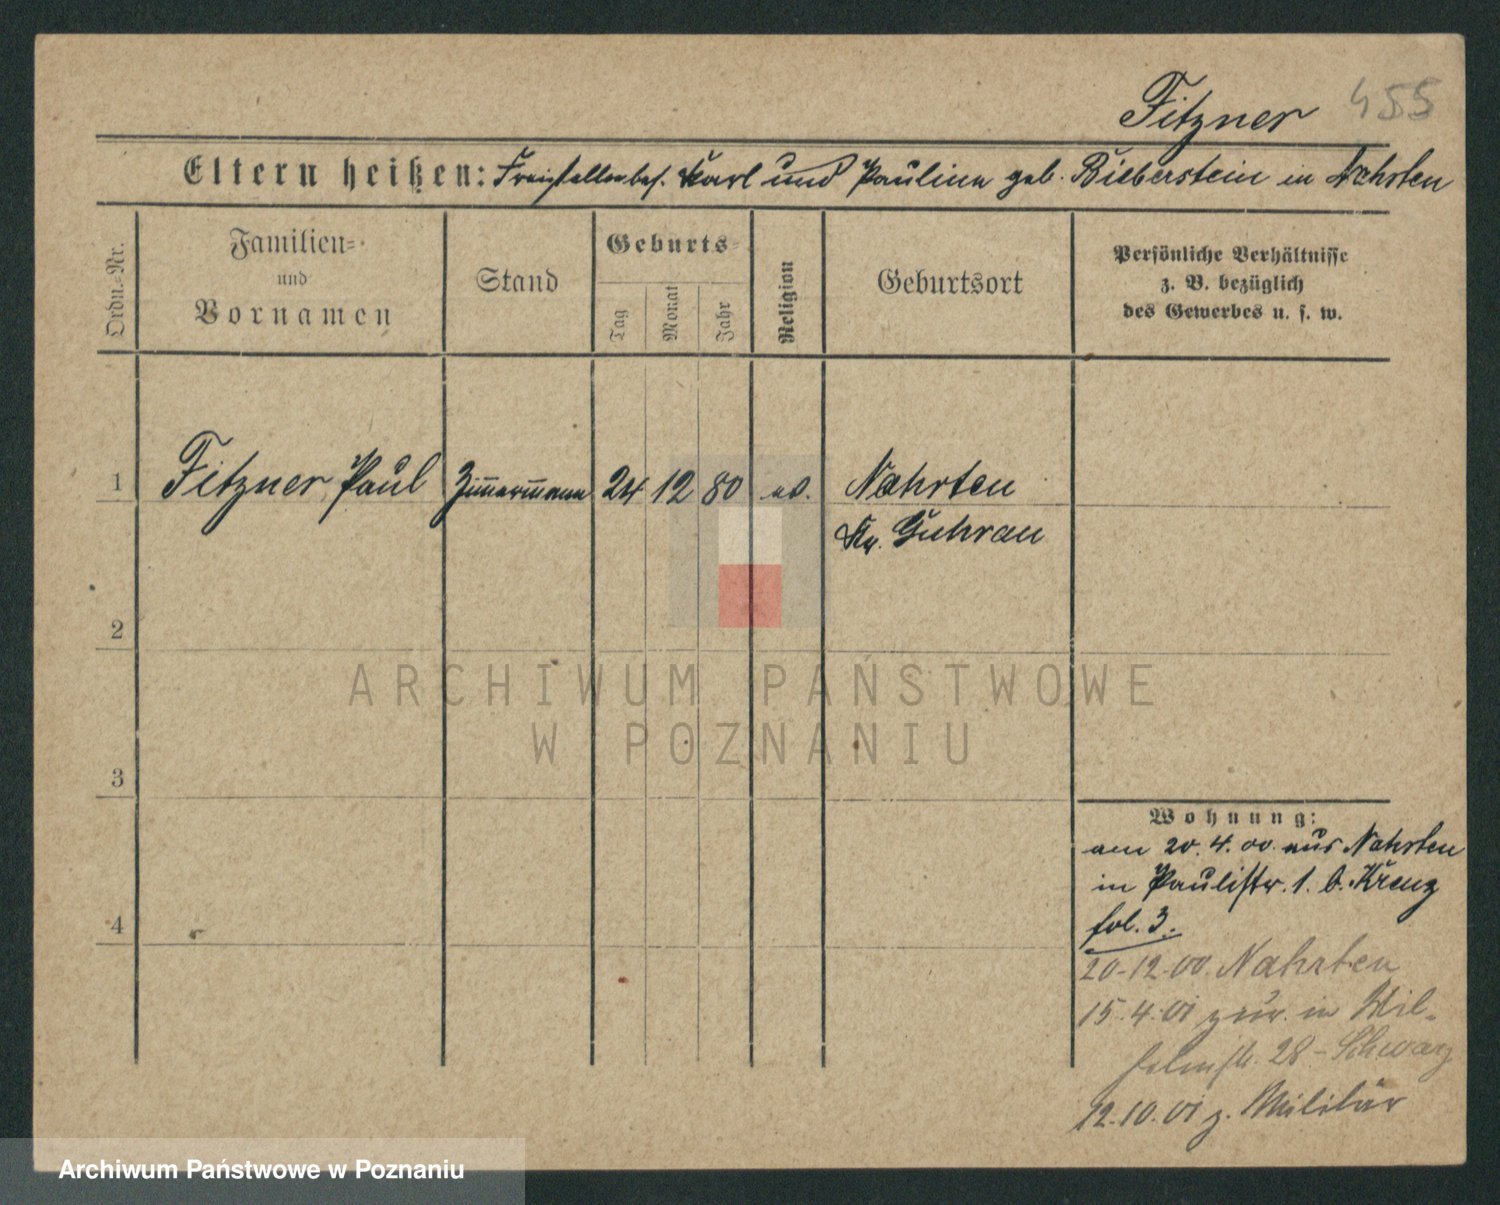 Fitzner 455
Eltern heißen: Freistellenbes. Karl und Pauline geb. Bieberstein in Nahrten
Ordn.-Nr.
Familien-
und
Vornamen
Stand
Geburts-
Tag
Monat
Jahr
Religion
Geburtsort
Persönliche Verhältnisse
z. B. bezüglich
des Gewerbes u. s. w.
1 Fitzner Paul Zimmermann 24 12 80 ev. Nahrten
Kr. Guhrau
2
ARCHIWUM PAŃSTWOWE
W POZNANIU
3
Wohnung:
am 20.4.00. aus Nahrten
in Paulistr. 1. b. Kreuz
4
fol. 3.
20-12-00. Nahrten
15.4.01 zur. in Wil-
helmstr. 28 - Schwarz
12.10.01 z. Militär
Archiwum Państwowe w Poznaniu